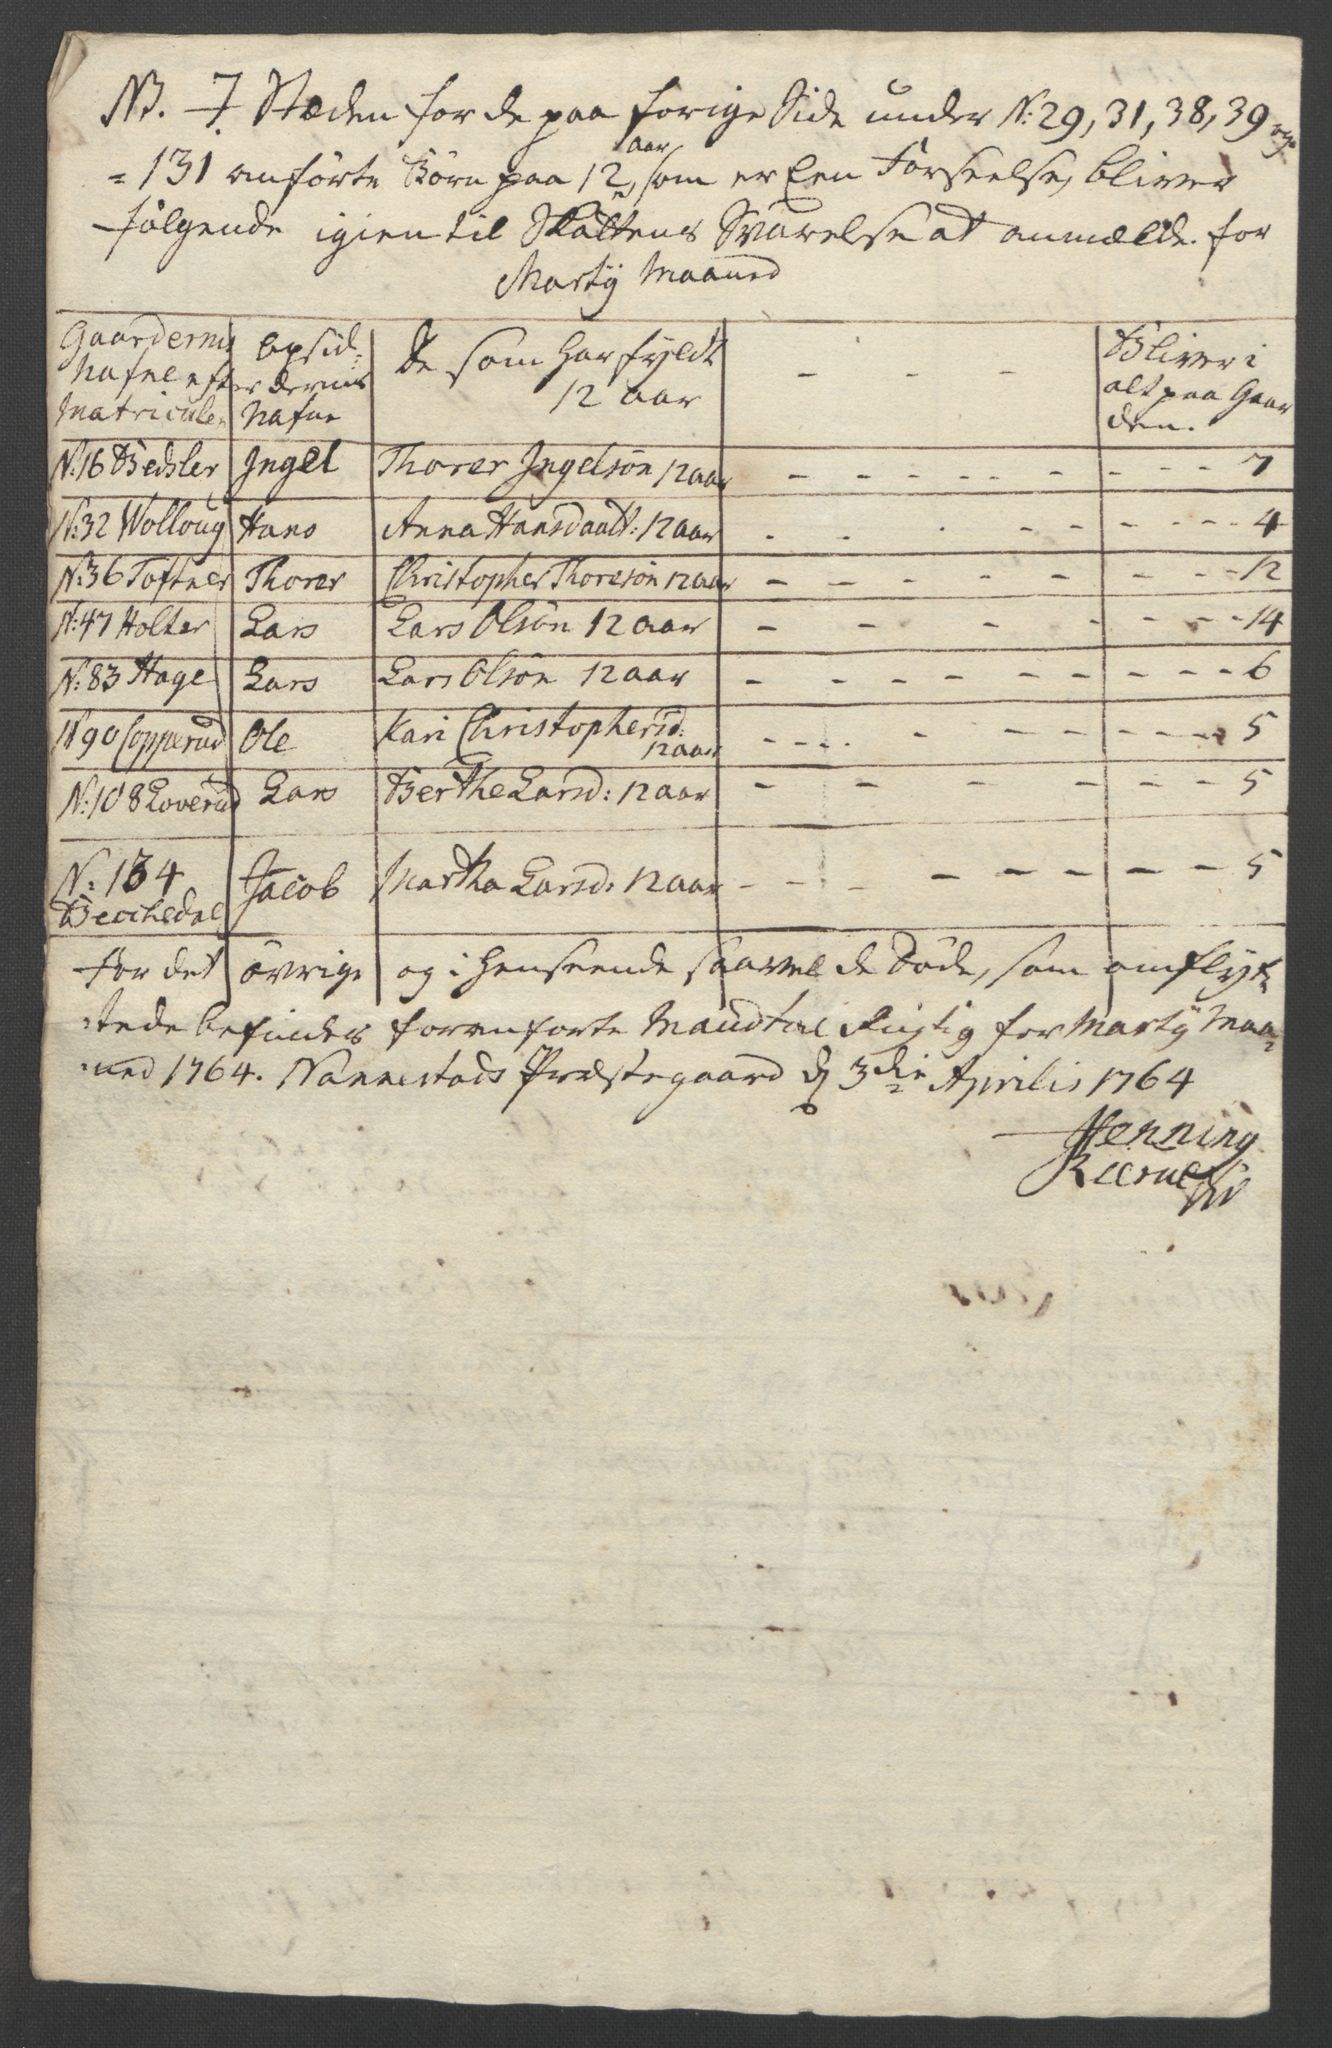 NB. I Stæden for de paa forige Side under N: 29, 31, 38, 39 og
= 131 anførte Børn paa 12 aar, som er Een Forseelse, bliver
følgende igien til Skattens Svarelse at anmælde for
Martÿ Maaned
Gaardernis Nafne efter Matriculen | Opsiddernis Nafne | De som har fyldt 12 aar | - - - | Bliver i alt paa Gaarden.
N: 16 Bedsler | Ingel | Thorer Ingelsön 12 aar | - - - - - | - - - 7
N: 32 Wolloug | Hans | Anna Hansdaatt: 12 aar | - - - - - | - - - 4
N: 36 Toftner | Thorer | Christopher Thoresön 12 aar | - - - - | - - - 12
N: 47 Holter | Lars | Lars Olsön 12 aar | - - - - | - - - 14
N: 83 Hage | Lars | Lars Olsön 12 aar | - - - - - | - - - 6
N 90 Copperud | Ole | Kari Christophersd: 12 aar | - - - - - | - - - 5
N: 108 Loverud | Lars | Berthe Larsd: 12 aar | - - - - | - - - 5
N: 134 Becchedal | Jacob | Martha Larsd: 12 aar | - - - - - - | - - - 5
For det övrige og i Henseende saavel de Døde, som omflyt=
=tede befindes foranførte Mandtal Rigtig for Martÿ Maa=
=ned 1764. Nannestads Præstegaard d 3die Aprilis 1764
Henning